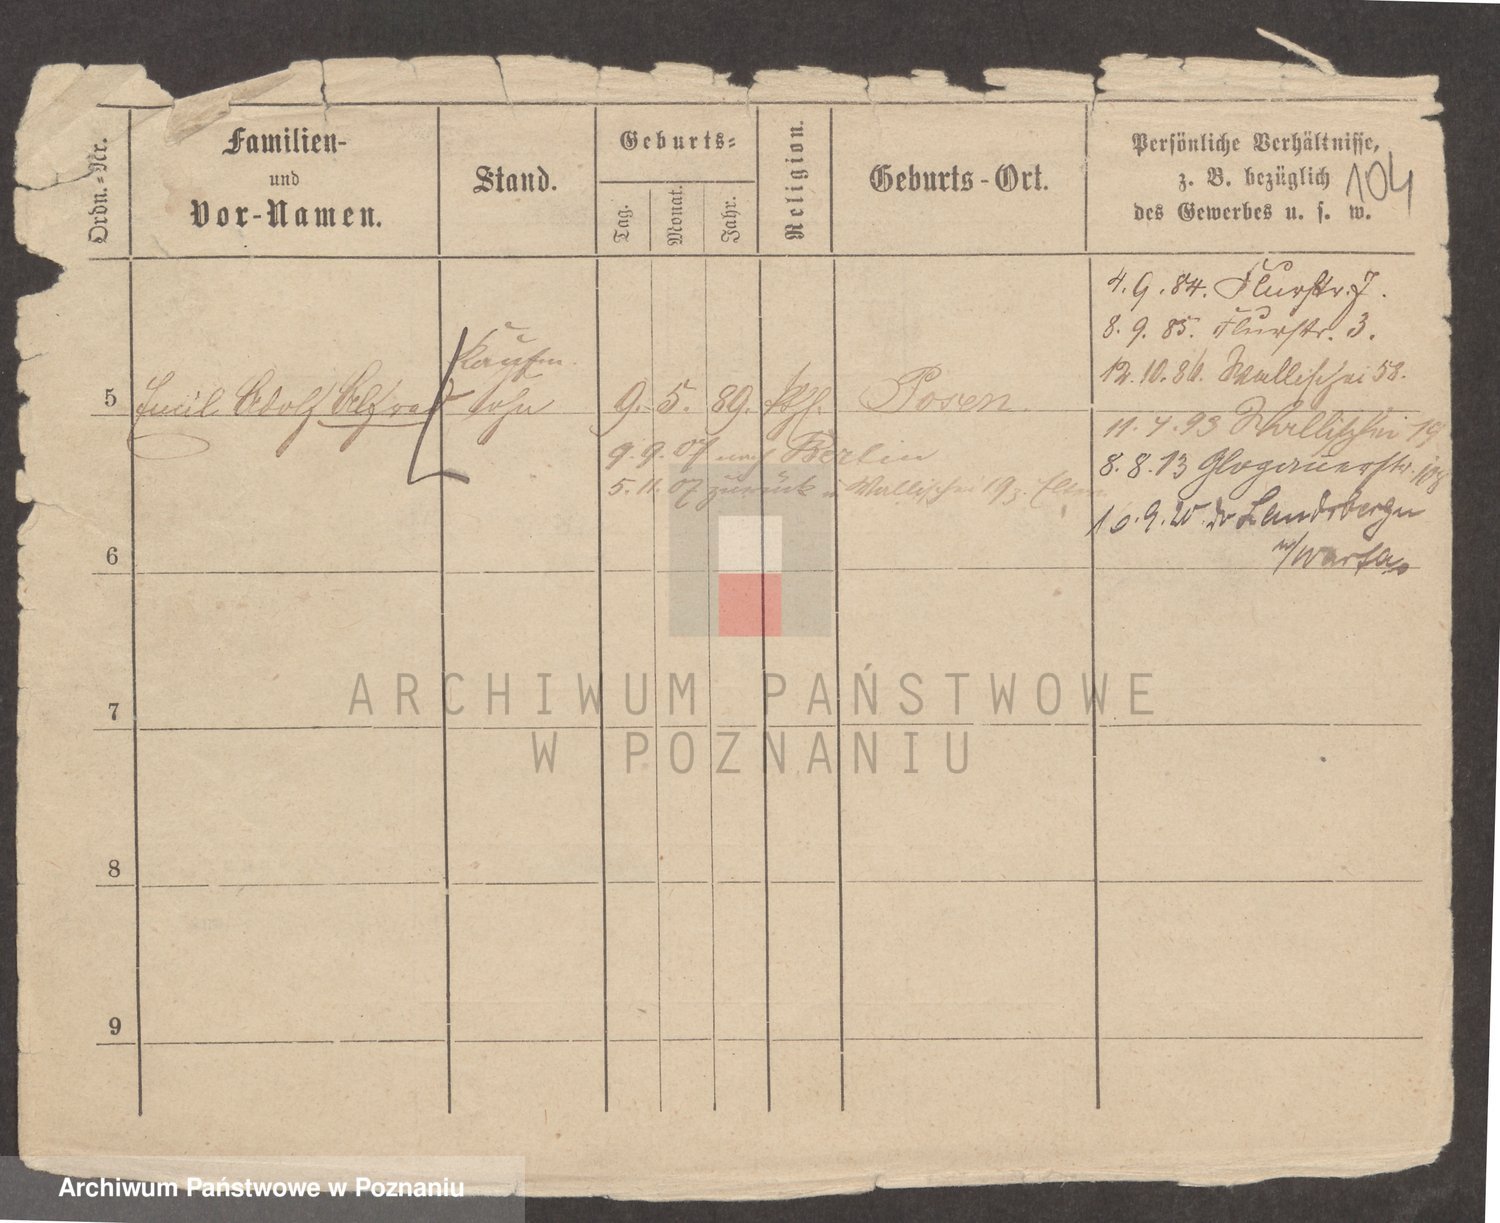 Ordn.-Nr.
Familien-
und
Vor-Namen.
Stand.
Geburts-
Tag.
Monat.
Jahr.
Religion.
Geburts-Ort.
Persönliche Verhältnisse,
z. B. bezüglich
des Gewerbes u. s. w.
104
4. 9. 84. Flurstr. 7.
8. 9. 85. Flurstr. 3.
12. 10. 86. Wallischei 58.
Kaufm.
5 Emil Adolf sohn 9. 5. 89. Posen
11. 4. 93 Wallischei 19
9. 9. 07 nach Berlin
8. 8. 13 Glogauerstr. 108
5. 11. 07 zurück Wallischei 19 z. Eltern
10. 9. 20 Landsberg
w/Warta
6
7
8
9
ARCHIWUM PAŃSTWOWE
W POZNANIU
Archiwum Państwowe w Poznaniu